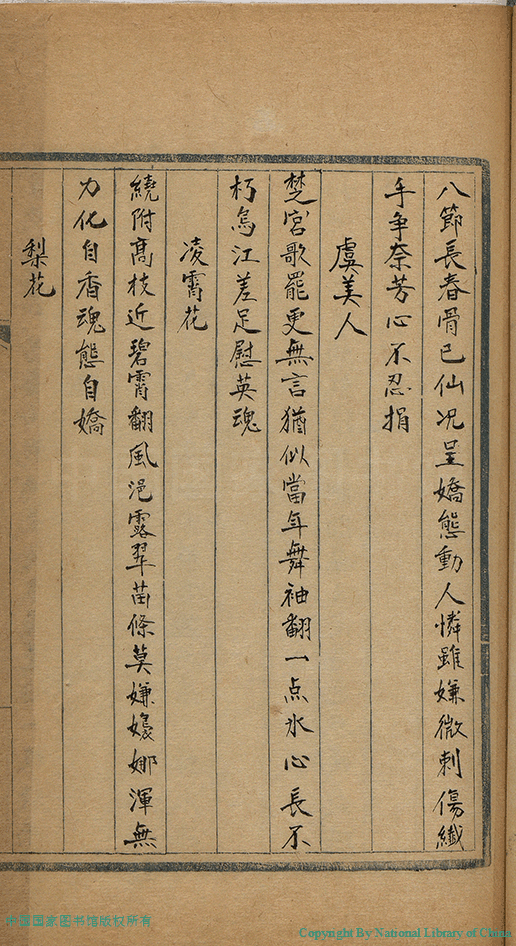 八節長春骨已仙况呈嬌態動人憐雖嫌微刺傷纖
手争奈芳心不忍捐
虞美人
楚宮歌罷更無言猶似當年舞袖翻一点氷心長不
朽烏江差足慰英魂
凌霄花
繞附高枝近碧霄翻風浥露翠苗條莫嫌嬡娜渾無
力化自香魂態自嬌
梨花
中国国家图书馆版权所有
Copyright By National Library of China